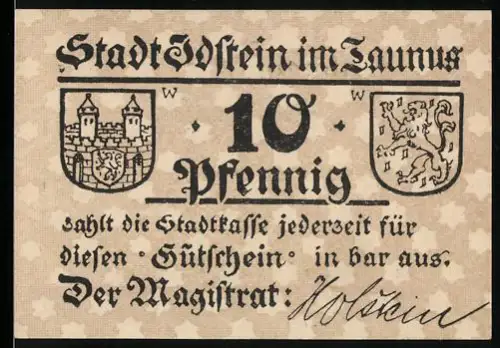 Stadt Idstein im Taunus
W W
· 10 ·
Pfennig
zahlt die Stadtkasse jederzeit für
diesen · Gütschein · in bar aus.
Der Magistrat: Holstein